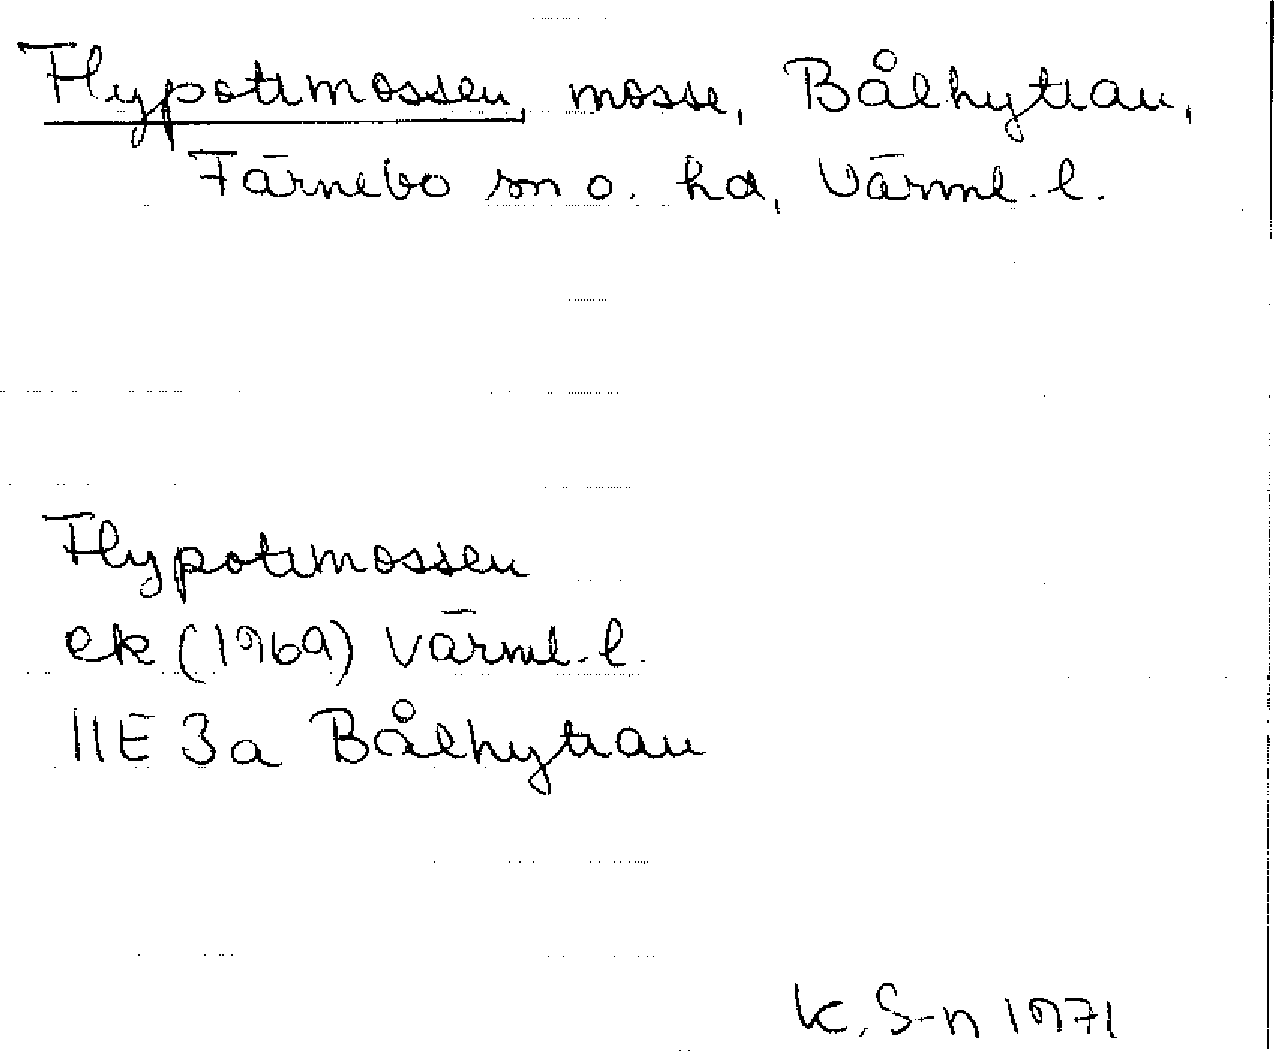 Flypottmossen, mosse, Bålhyttan,
Färnebo sn o. hd, Värml. l.
Flypottmossen
ek (1969) Värml. l.
11E 3a Bålhyttan
K. S-n 1971